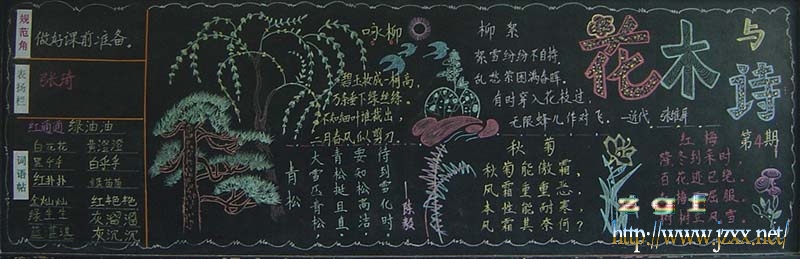 规范角
做好课前准备。
表扬栏
张琦
词语帖
红通通 绿油油
白花花 黄澄澄
黑乎乎 白乎乎
红扑扑
金灿灿 红艳艳
绿生生 灰溜溜
蓝莹莹 灰沉沉
咏柳
碧玉妆成一树高,
万条垂下绿丝绦。
不知细叶谁裁出,
二月春风似剪刀。
青松
大雪压青松,
青松挺且直。
要知松高洁,
待到雪化时
——陈毅
柳絮
絮雪纷纷不自持,
乱愁萦困满春晖。
有时穿入花枝过,
无限蜂儿作对飞。
秋菊
秋菊能傲霜,
风霜重重恶。
本性能耐寒,
风霜其奈何?
花木与诗
第4期
红梅
隆冬到来时
百花迹已绝
红梅不屈服
树树立风雪。
zgf
http://www.jzxx.net/